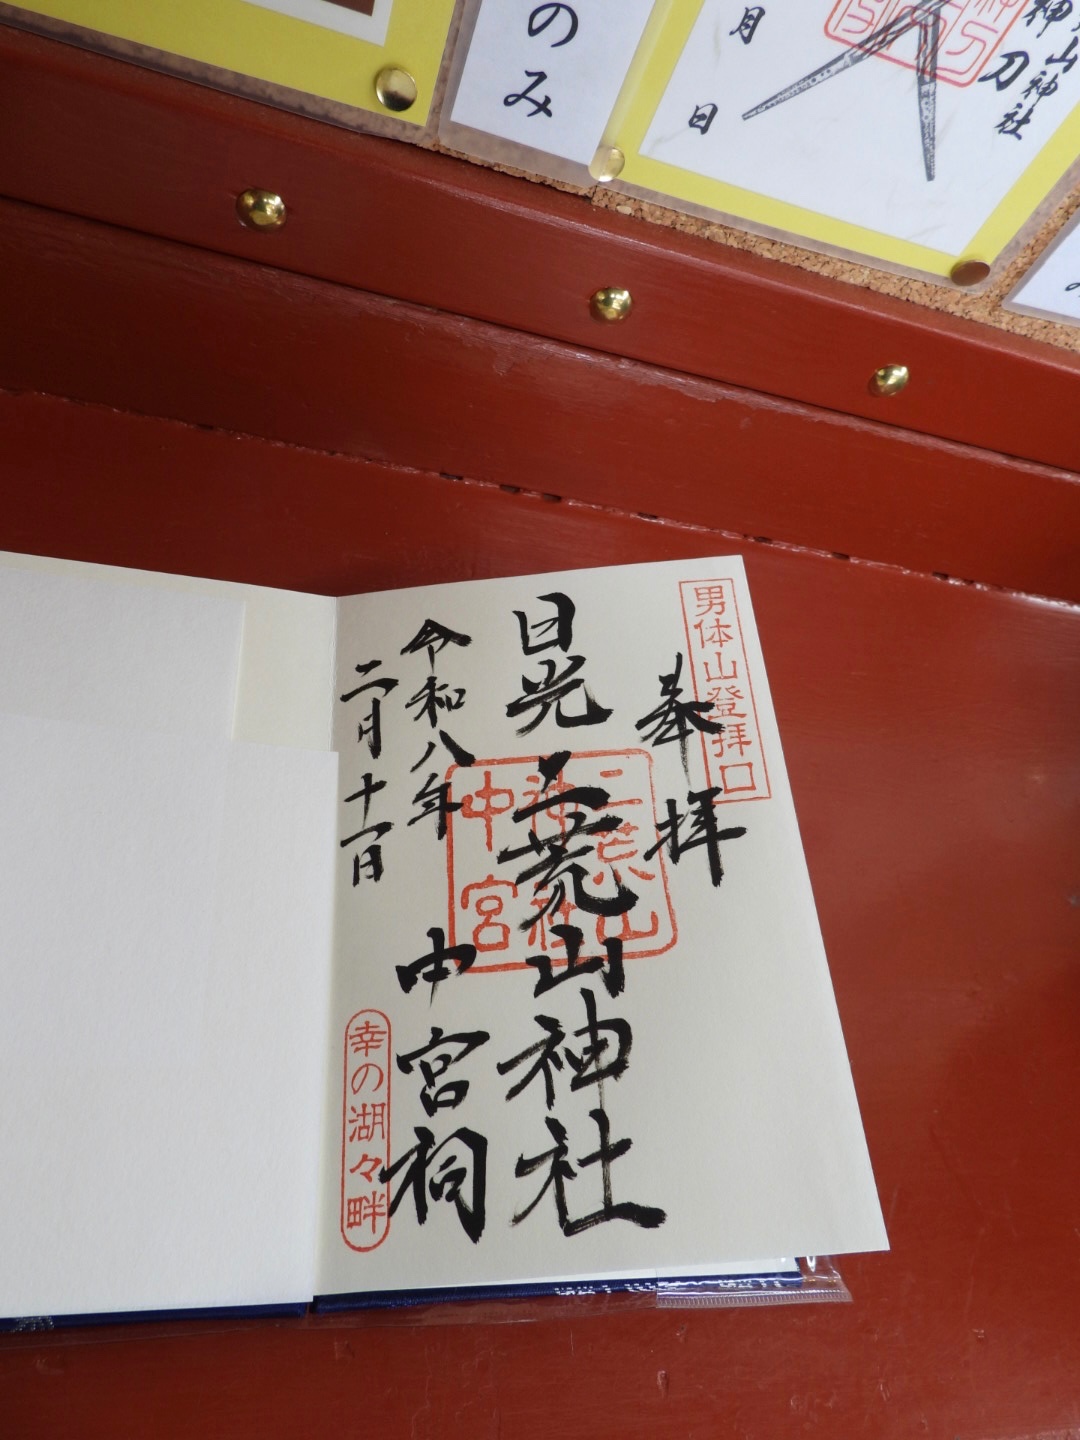 のみ
月
日
刀
山神社
男体山登拝口
奉拝
日光二荒山神社
二荒山
神社
中宮
中宮祠
令和八年
二月十一日
幸の湖々畔